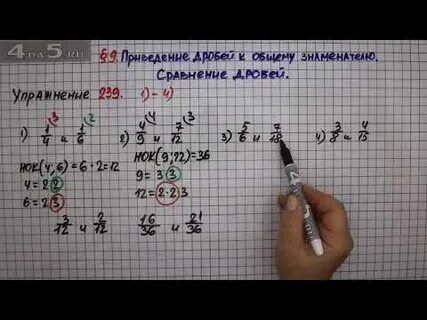 4РА5.RU
§ 9. Приведение дробей к общему знаменателю.
Сравнение дробей.
Упражнение 239. 1)-4)
1) 1/4 и 1/6 3 2
НОК(4;6)=6·2=12
4=2·2
6=2·3
3/12 и 2/12
2) 4/9 и 7/12 4 3
НОК(9;12)=36
9=3·3
12=2·2·3
16/36 и 21/36
3) 5/6 и 7/18
4) 3/8 и 4/15